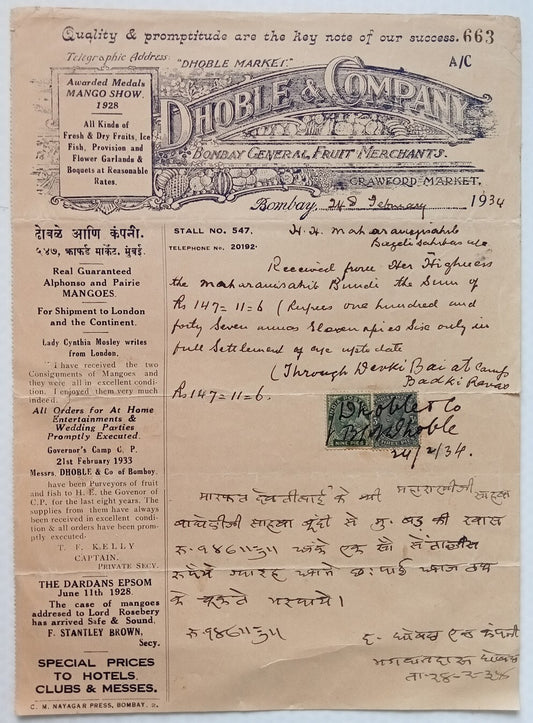 Quality & promptitude are the key note of our success. 663
Telegraphic Address: "DHOBLE MARKET." A/C
Awarded Medals
MANGO SHOW.
1928
All Kinds of
Fresh & Dry Fruits, Ice
Fish, Provision and
Flower Garlands &
Boquets at Reasonable
Rates.
DHOBLE & COMPANY
BOMBAY GENERAL FRUIT MERCHANTS.
CRAWFORD MARKET.
Bombay, 24th February 1934
ढोबळे आणि कंपनी.
५४७, क्राफर्ड मार्केट, मुंबई.
Real Guaranteed
Alphonso and Pairie
MANGOES.
For Shipment to London
and the Continent.
Lady Cynthia Mosley writes
from London.
"I have received the two
Consignments of Mangoes and
they were all in excellent condi-
tion. I enjoyed them very much
indeed.
All Orders for At Home
Entertainments &
Wedding Parties
Promptly Executed.
Governor's Camp C. P.
21st February 1933
Messrs. DHOBLE & Co of Bombay.
have been Purveyors of fruit
and fish to H. E. the Govenor of
C.P. for the last eight years. The
supplies from them have always
been received in excellent condition
& all orders have been prom-
ptly executed.
T. F. KELLY
CAPTAIN.
PRIVATE SECY.
THE DARDANS EPSOM
June 11th 1928.
The case of mangoes
addresed to Lord Rosebery
has arrived Safe & Sound.
F. STANTLEY BROWN,
Secy.
SPECIAL PRICES
TO HOTELS.
CLUBS & MESSES.
C. M. NAYAGAR PRESS, BOMBAY, 2.
STALL NO. 547.
TELEPHONE No. 20192.
H. H. Maharanisahib
Bageli sahibas
Received from Her Highness
the Maharanisahib Bundi the Sum of
Rs 147=11=6 (Rupees one hundred and
forty Seven annas Eleven pies Six only in
full Settlement of a/c upto date
(Through Devki Bai at Camp
Badki Ravas
Rs 147=11=6.
Dhoble & Co
NINE PIES THREE PIES
Dhoble
24/2/34.
मारफत देवकीबाई के श्री महाराणीजी साहब
बाघेलीजी साहबा बूंदी से मु. बड की रवास
एक सौ सेंतालीस
ग्यारह आने छः पाई आज तक
के चूकते भरपाये।
द. धोबळे एन्ड कंपनी
ता-२४-२-३४